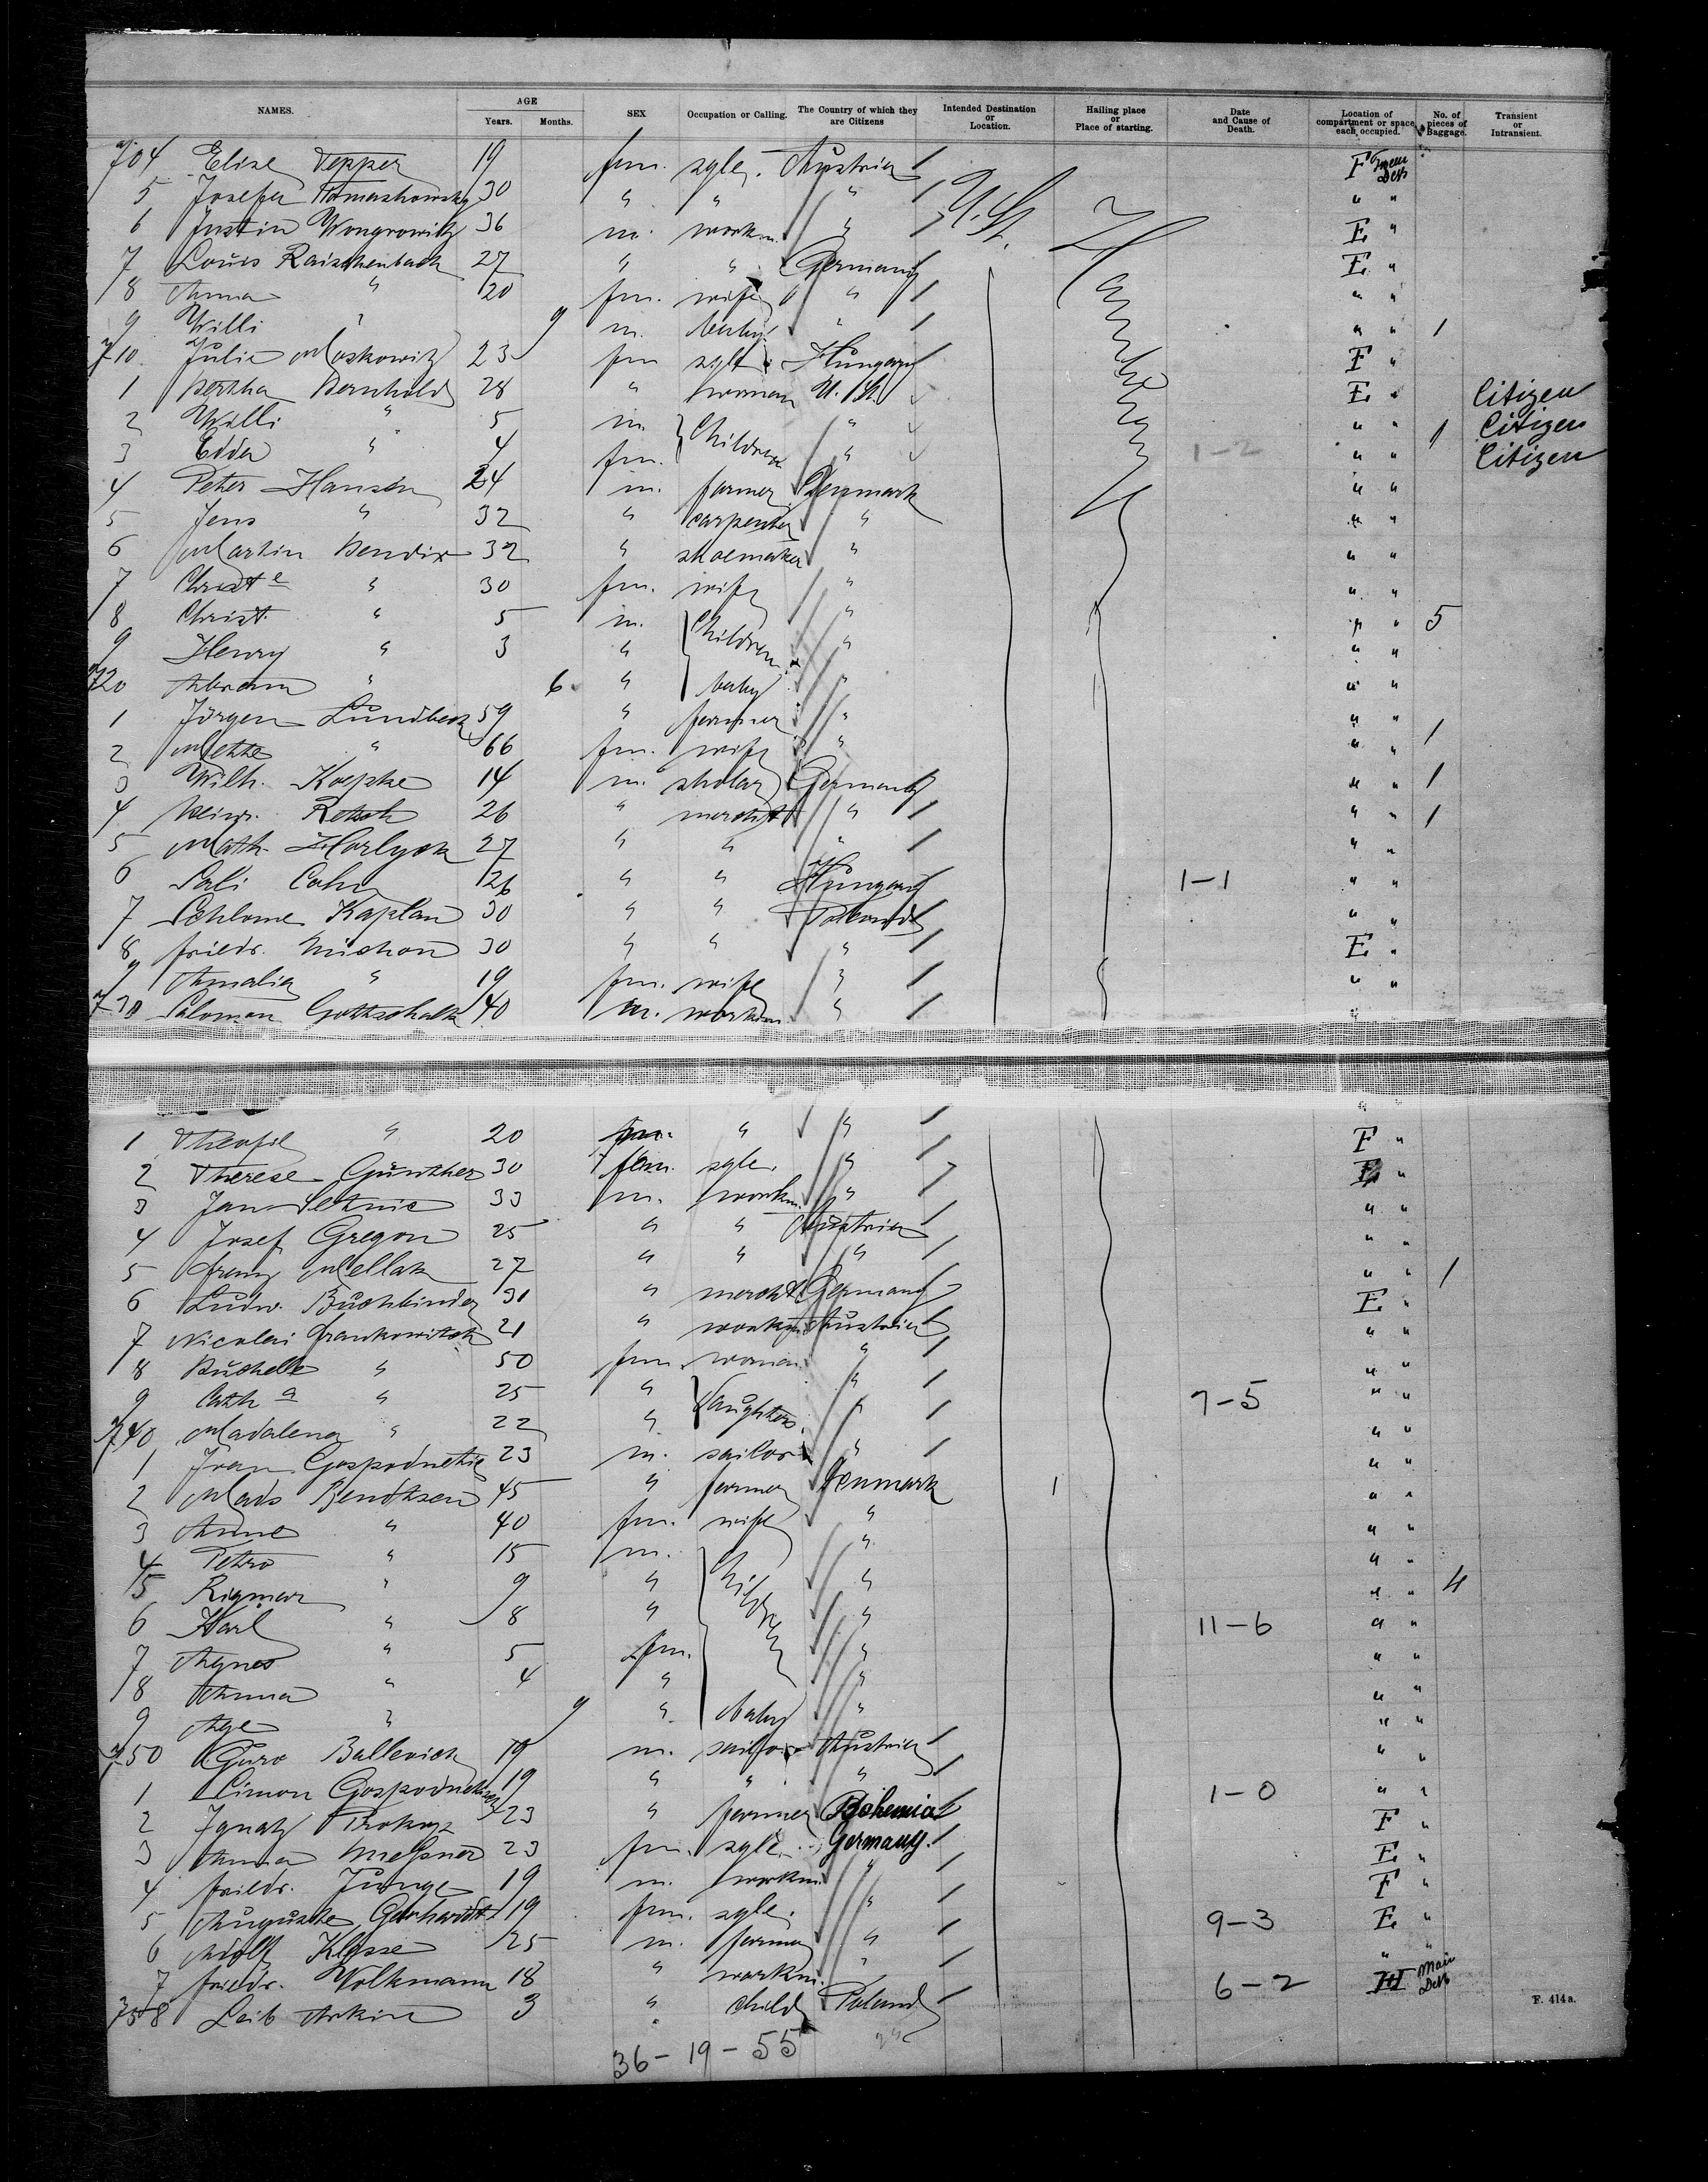 NAMES. AGE Years. Months. SEX Occupation or Calling. The Country of which they are Citizens Intended Destination or Location. Hailing place or Place of starting. Date and Cause of Death. Location of compartment or space each occupied. No. of pieces of Baggage. Transient or Intransient.
704 Elise Tepper 19 fm. sgle. Austria U. St. Hamburg F
5 Josefa Tomashowsky 30 " " " " "
6 Justin Wongrowitz 36 m. workm. " E "
7 Louis Raischenbach 27 " " Germany E "
8 Anna " 20 fm. wife " " "
9 Willi " 9 m. baby " " " 1
710 Julie Moskowitz 23 fm sgle Hungary F "
1 Bertha Bernhold 28 " woman U. St. E " Citizen
2 Willi " 5 m. Children " " " 1 Citizen
3 Edda " 4 fm. " 1-2 " " Citizen
4 Peter Hansen 24 m. farmer Denmark " "
5 Jens " 32 " carpenter " " "
6 Martin Bendix 32 " shoemaker " " "
7 Christe " 30 fm. wife " " "
8 Christ. " 5 m. Children " " " 5
9 Henry " 3 " " " "
720 Abram " 6 " baby " " "
1 Jörgen Lundbeck 59 " farmer " " " 1
2 Mette " 66 fm. wife " " "
3 Wilh. Koepke 14 m. scholar Germany " " 1
4 Heinr. Retsch 26 " merch't " " " 1
5 Math. Horlyck 27 " " " " "
6 Sali Cahn 26 " " Hungary 1-1 " "
7 Schlome Kaplan 30 " " Poland " "
8 Friedr. Michon 30 " " " E "
9 Amalia " 19 fm. wife " " "
730 Salomon Gottschalk 40 m. workm. " " "
1 Theofil " 20 fm. " " F "
2 Therese Günther 30 fem. sgle. " E "
3 Jan Letnic 33 m. workm. " " "
4 Josef Gregon 25 " " Austria " "
5 Franz Mellak 27 " " " " " 1
6 Ludw. Buchbinder 31 " mercht Germany E "
7 Nicolai Frankowitsch 21 " workm Austria " "
8 " 50 fm. woman " " "
9 Catha " 25 " Daughters " 7-5 " "
740 Madalena " 22 " " " "
1 Ivan Gospodnetic 23 m. sailor " " "
2 Mads Bendtsen 45 " farmer Denmark " "
3 Anne " 40 fm. wife " " "
4 Petro " 15 m. Children " " "
5 Rigmor " 9 " " " " 4
6 Karl " 8 " " 11-6 " "
7 Agnes " 5 fm. " " "
8 Anna " 4 " " " "
9 Age " 9 " baby " " "
750 Guro Ballevich 19 m. sailor Austria " "
1 Simon Gospodnetich 19 " " " 1-0 " "
2 Ignatz Prokop 23 " farmer Bohemia F "
3 Anna Meßner 23 fm. sgle. Germany. E "
4 Friedr. Junge 19 m. workm. " F "
5 Auguste Gerhardt 19 fm. sgle. " 9-3 E "
6 Adolf Klasse 25 m. farmer " " "
7 Friedr. Volkmann 18 " workm. " 6-2 H Main Deck
758 Leib Arkin 3 " child Poland
36-19-55
F. 414a.